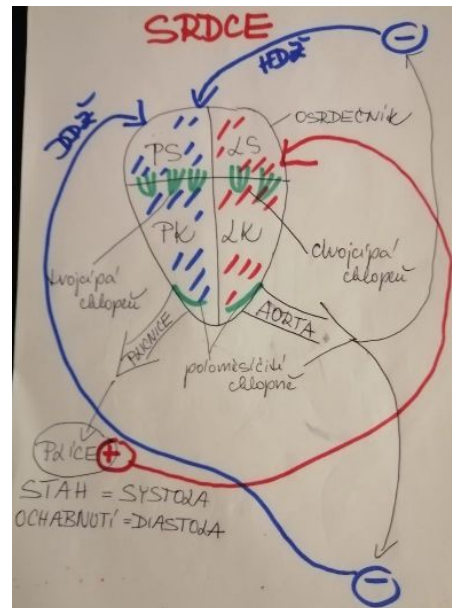 SRDCE
HDŽ
DDŽ
OSRDEČNÍK
PS
LS
PK
LK
trojcípá
chlopeň
dvojcípá
chlopeň
PLICNICE
AORTA
poloměsíčité
chlopně
PLÍCE
STAH = SYSTOLA
OCHABNUTÍ = DIASTOLA